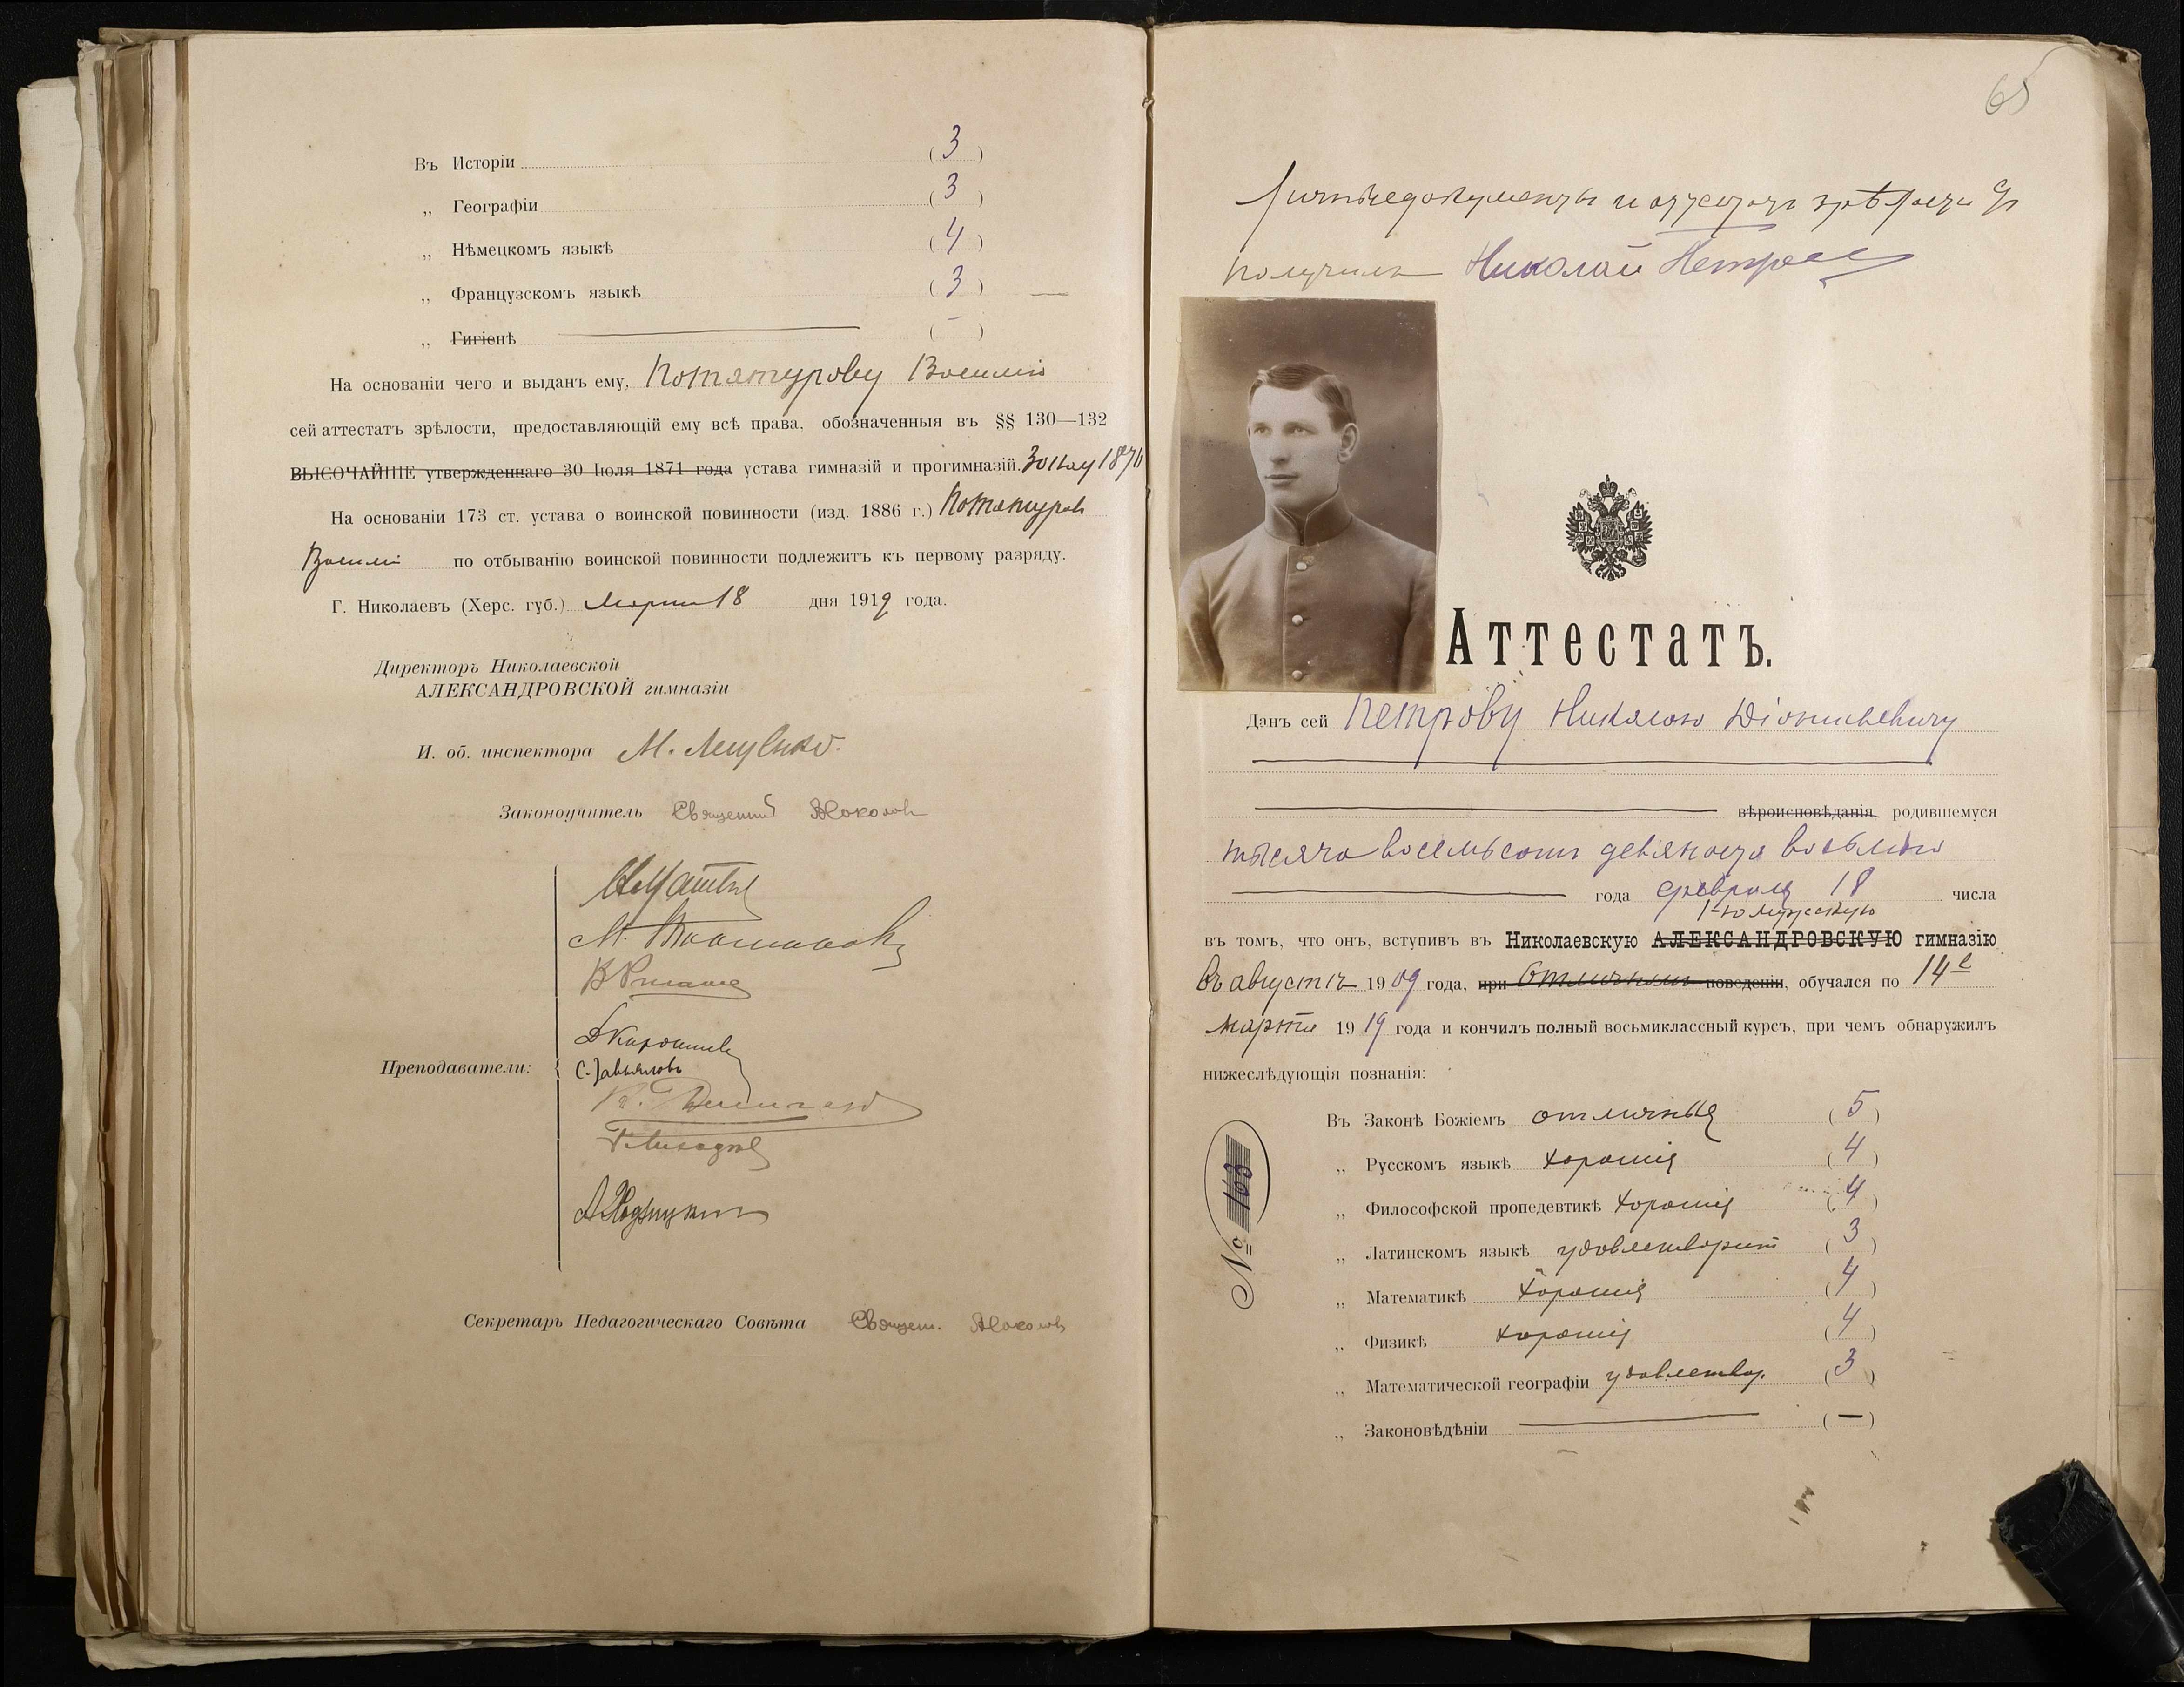 Въ Исторіи (3)
„ Географіи (3)
„ Нѣмецкомъ языкѣ (4)
„ Французскомъ языкѣ (3) —
„ Гигіенѣ (-)
На основаніи чего и выданъ ему, Потятурову Василію
сей аттестатъ зрѣлости, предоставляющій ему всѣ права, обозначенныя въ §§ 130—132
ВЫСОЧАЙШЕ утвержденнаго 30 Іюля 1871 года устава гимназій и прогимназій.
На основаніи 173 ст. устава о воинской повинности (изд. 1886 г.) Потятуровъ
Василій по отбыванію воинской повинности подлежитъ къ первому разряду.
Г. Николаевъ (Херс. губ.) Марта 18 дня 1919 года.
Директоръ Николаевской
АЛЕКСАНДРОВСКОЙ гимназіи
И. об. инспектора М.
Законоучитель Священникъ
Преподаватели:
С. Завьяловъ
Секретарь Педагогическаго Совѣта Священ.
65
Личные документы и аттестатъ зрѣлости
получилъ Николай Петровъ
Аттестатъ.
Данъ сей Петрову Николаю Діонисьевичу
вѣроисповѣданія родившемуся
тысяча восемьсотъ девяносто восьмого
года февраля 18 числа
1-ю мужскую
въ томъ, что онъ, вступивъ въ Николаевскую АЛЕКСАНДРОВСКУЮ гимназію
въ августѣ 1909 года, при отличномъ поведеніи, обучался по 14е
марта 1919 года и кончилъ полный восьмиклассный курсъ, при чемъ обнаружилъ
нижеслѣдующія познанія:
Въ Законѣ Божіемъ отличныя (5)
„ Русскомъ языкѣ хорошія (4)
„ Философской пропедевтикѣ хорошія (4)
„ Латинскомъ языкѣ удовлетворит (3)
„ Математикѣ хорошія (4)
„ Физикѣ хорошія (4)
„ Математической географіи удовлетвор. (3)
„ Законовѣдѣніи (—)
№ 163